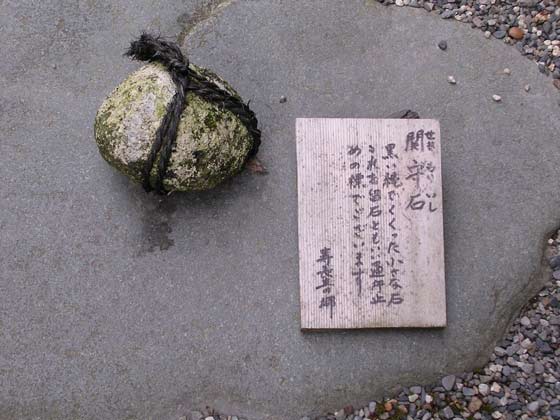 関守石
せきもりいし
黒い縄でくくった小さな石
これを留石ともいい通行止
めの標でございます
寿長生の郷